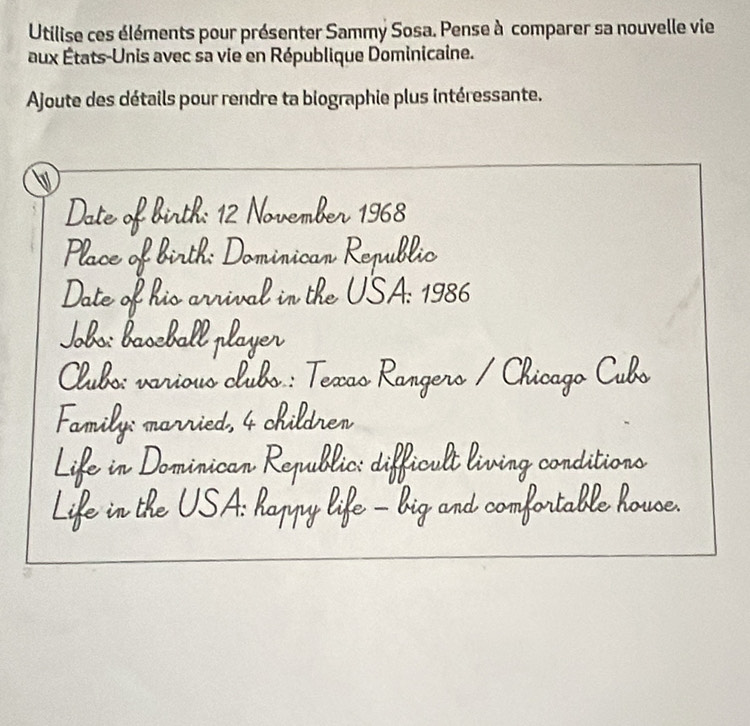 Utilise ces éléments pour présenter Sammy Sosa. Pense à comparer sa nouvelle vie
aux États-Unis avec sa vie en République Dominicaine.
Ajoute des détails pour rendre ta biographie plus intéressante.
Date of birth: 12 November 1968
Place of birth: Dominican Republic
Date of his arrival in the USA: 1986
Jobs: baseball player
Clubs: various clubs: Texas Rangers / Chicago Cubs
Family: married, 4 children
Life in Dominican Republic: difficult living conditions
Life in the USA: happy life - big and comfortable house.